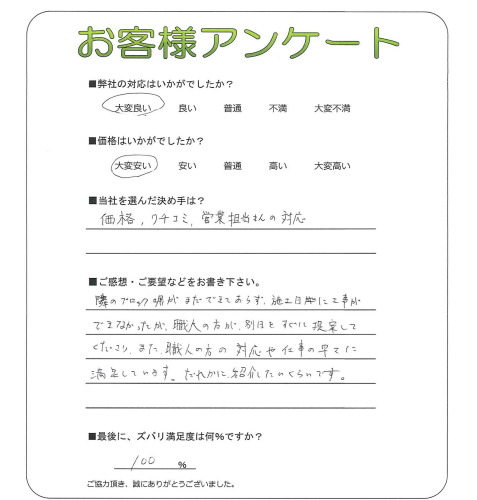 お客様アンケート
■弊社の対応はいかがでしたか？
大変良い 良い 普通 不満 大変不満
■価格はいかがでしたか？
大変安い 安い 普通 高い 大変高い
■当社を選んだ決め手は？
価格，クチコミ，営業担当さんの対応
■ご感想・ご要望などをお書き下さい。
隣のブロック塀がまだできておらず、施工日際に工事が
できなかったが、職人の方が、別日をすぐに提案して
くださり、また、職人の方の対応や仕事の早さに
満足しています。だれかに紹介したいくらいです。
■最後に、ズバリ満足度は何%ですか？
100 %
ご協力頂き、誠にありがとうございました。